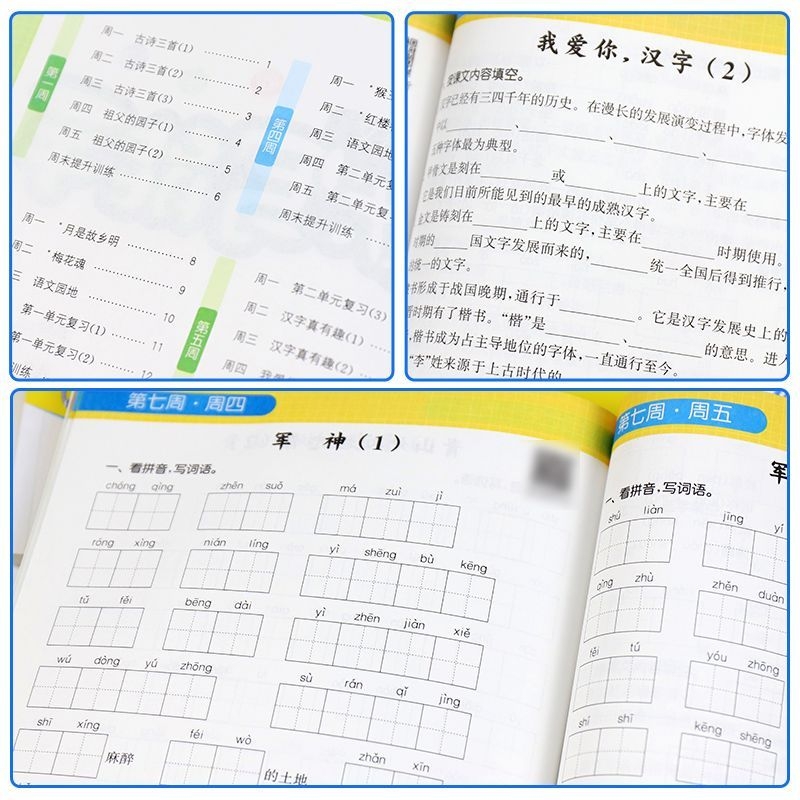 第一周
周一 古诗三首(1) 1
周二 古诗三首(2) 2
周三 古诗三首(3) 3
周四 祖父的园子(1) 4
周五 祖父的园子(2) 5
周末提升训练 6
周一 *月是故乡明 8
周二 *梅花魂 9
三 语文园地 10
第一单元复习(1) 11
第一单元复习(2) 12
训练
第四周
周一 *猴
周二 *红楼
周三 语文园地
周四 第二单元复
周五 第二单元复习
周末提升训练
第五周
周一 第二单元复习(3)
周二 汉字真有趣(1)
周三 汉字真有趣
周四 我
我爱你，汉字(2)
课文内容填空。
字已经有三四千年的历史。在漫长的发展演变过程中，字体发
以 、 、 、
五种字体最为典型。
骨文是刻在 或 上的文字，主要在
它是我们目前所能见到的最早的成熟汉字。
金文是铸刻在 上的文字，主要在 时期使用。
时期的 国文字发展而来的， 统一全国后得到推行，
的统一的文字。
书形成于战国晚期，通行于 。它是汉字发展史上的
时期有了楷书。“楷”是 、 的意思。进入
楷书成为占主导地位的字体，一直通行至今。
“李”姓来源于上古时代的
第七周·周四
军 神(1)
一、看拼音，写词语。
chóng qìng zhěn suǒ má zuì jì
róng xìng nián líng yì shēng bù kēng
tǔ fěi bēng dài yì zhēn jiàn xiě
wú dòng yú zhōng sù rán qǐ jìng
shī xíng 麻醉 féi wò 的土地 zhǎn xīn
第七周·周五
军
一、看拼音，写词语。
shú liàn jīng yí
qìng zhù zhěn duàn
fěi tú yóu zhōng
shí shī kēng shēng